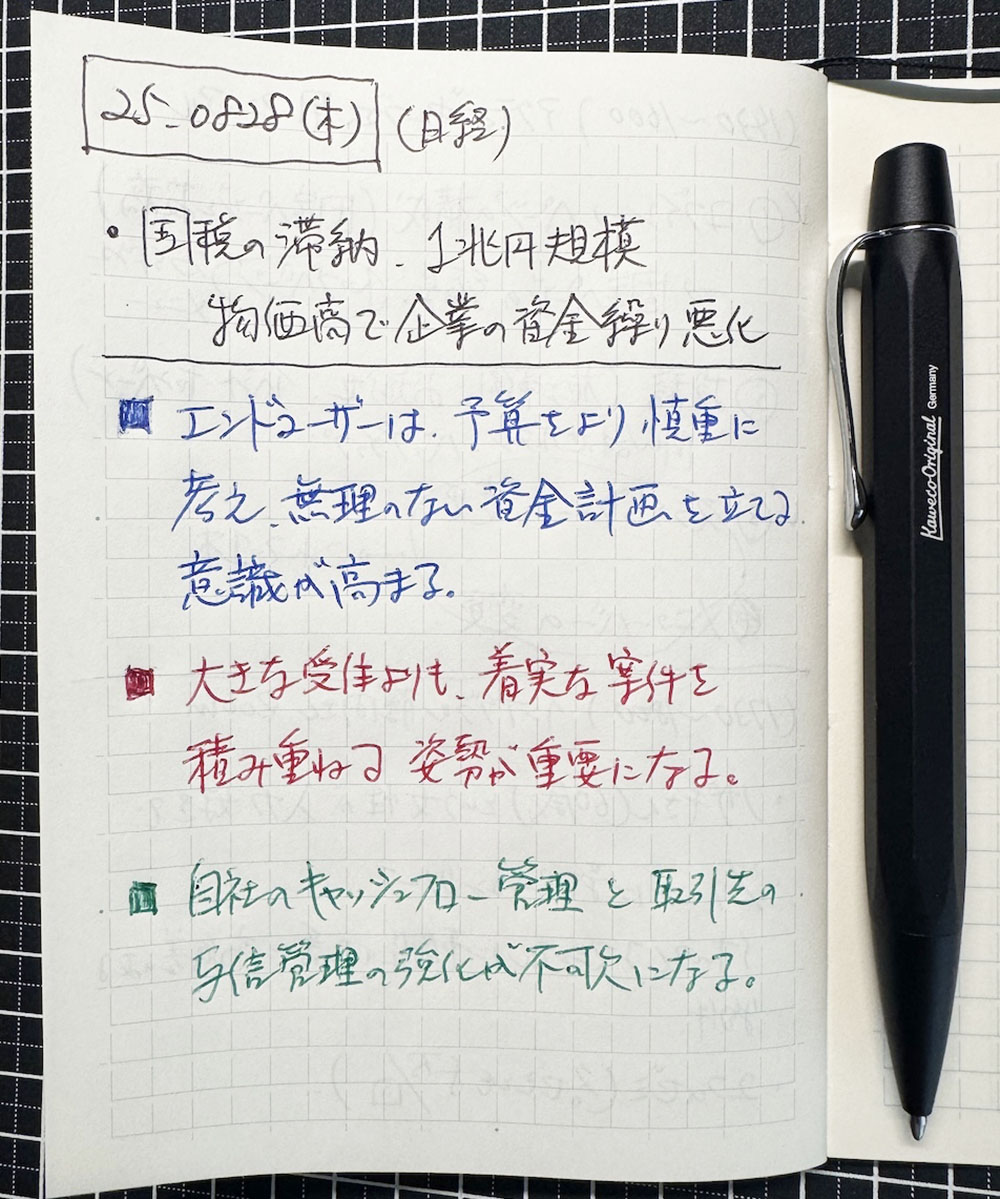 25.0828(木) (日経)
・国税の滞納、1兆円規模
物価高で企業の資金繰り悪化
■ エンドユーザーは、予算をより慎重に
考え、無理のない資金計画を立てる
意識が高まる。
■ 大きな受体よりも、着実な案件を
積み重ねる姿勢が重要になる。
■ 自社のキャッシュフロー管理と取引先の
与信管理の強化が不可欠になる。
Kaweco-Original Germany